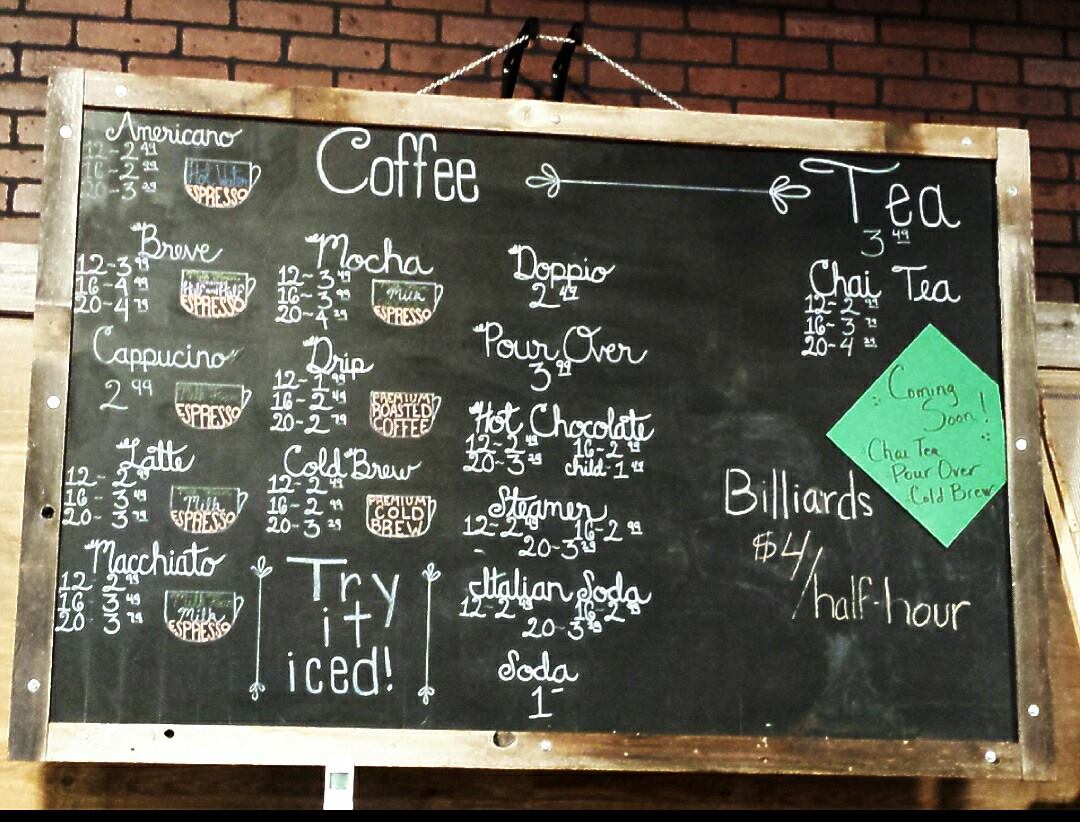 Americano
12-2 49
16-2 99
20-3 29
Hot Water
ESPRESSO
Breve
12-3 49
16-4
20-4 79
Half and Half
ESPRESSO
Cappucino
2 99
ESPRESSO
Latte
12-2 99
16-3 49
20-3 79
Milk
ESPRESSO
Macchiato
12 2 99
16 3 49
20 3 79
Milk
ESPRESSO
Coffee
Mocha
12-3 49
16-3 99
20-4 29
Milk
ESPRESSO
Drip
12-1 99
16-2 49
20-2 79
PREMIUM
ROASTED
COFFEE
Cold Brew
12-2 49
16-2 99
20-3 29
PREMIUM
COLD
BREW
Try
it
iced!
Doppio
2 49
Pour Over
3 99
Hot Chocolate
12-2 49 16-2 99
20-3 child-1
Steamer
12-2 49 16-2 99
20-3 29
Italian Soda
12-2 49 16-2 99
20-3 29
Soda
1-
Tea
3 49
Chai Tea
12-2 99
16-3 79
20-4 29
Coming
Soon!
Chai Tea
Pour Over
Cold Brew
Billiards
$4/
half-hour